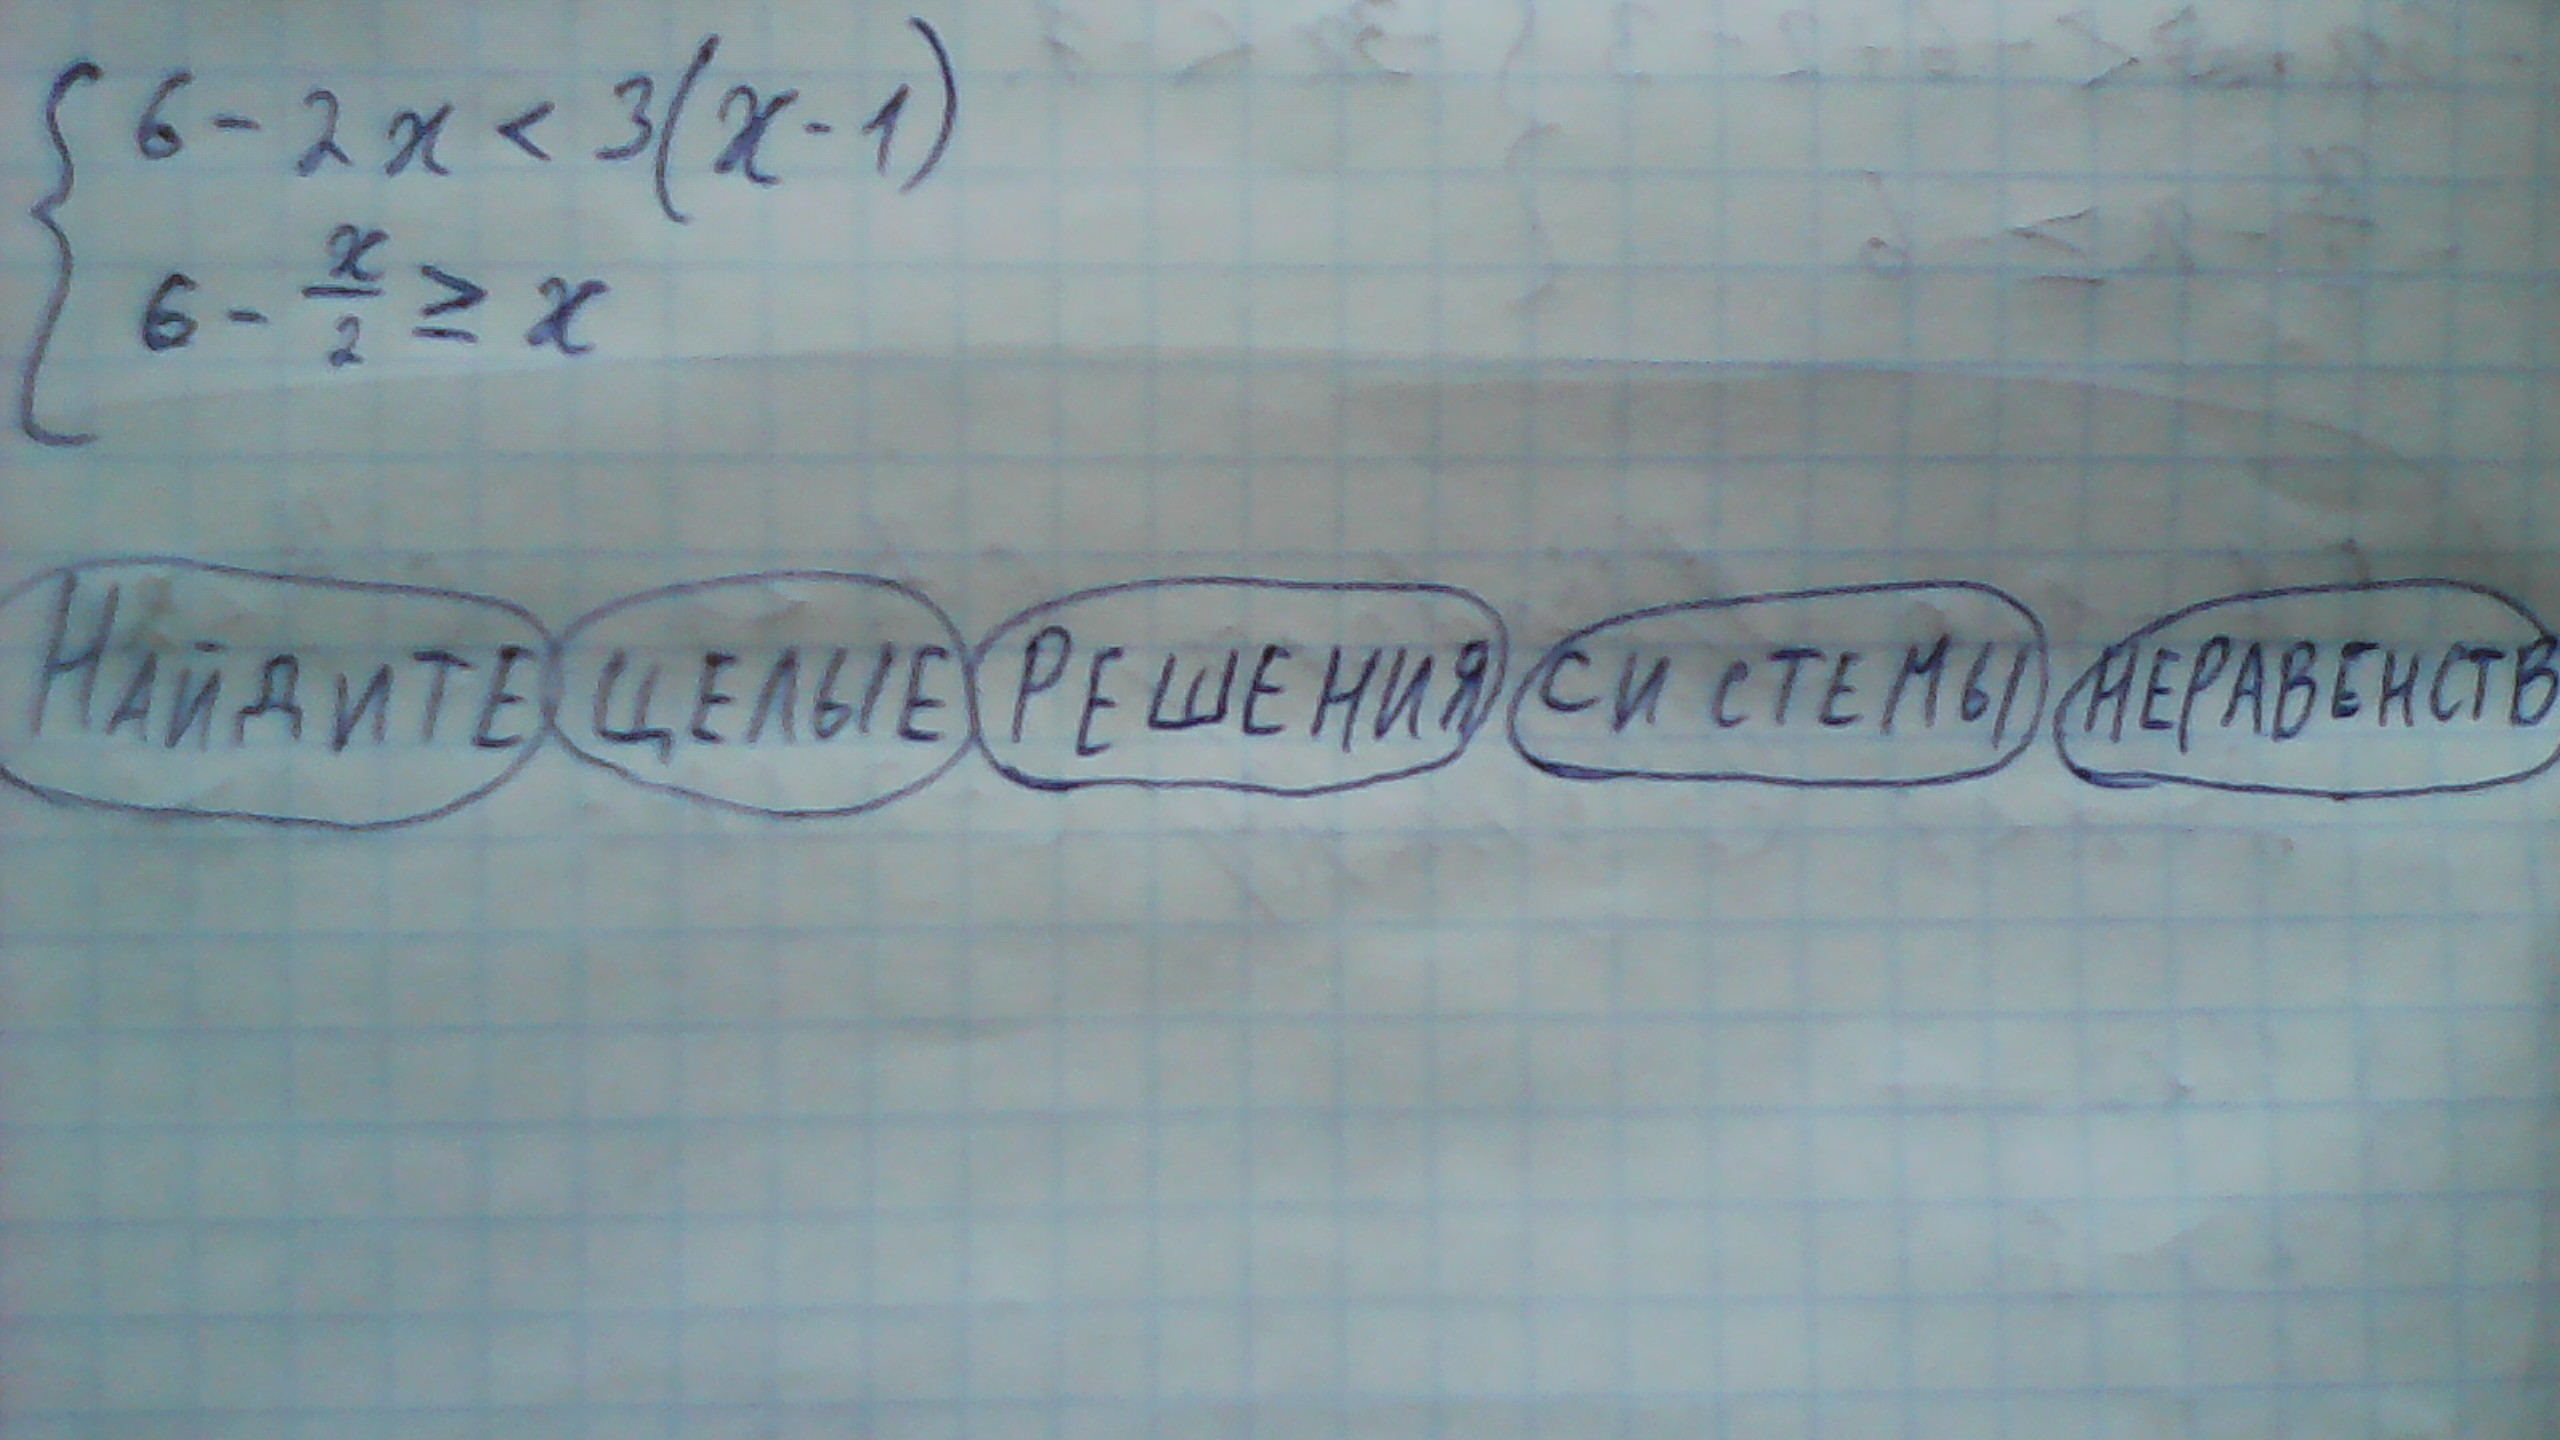 6 - 2x < 3(x - 1)
6 - x/2 ≥ x
НАЙДИТЕ ЦЕЛЫЕ РЕШЕНИЯ СИСТЕМЫ НЕРАВЕНСТВ